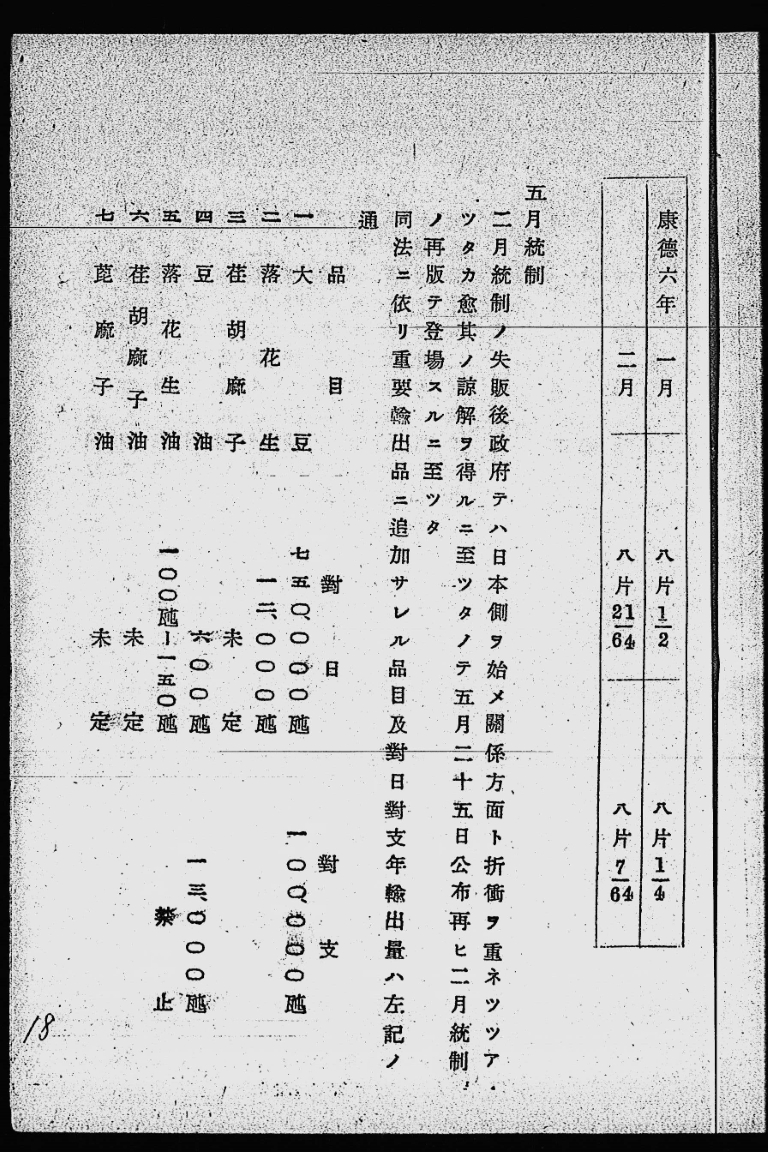 康德六年 一月 八片1/2 八片1/4
二月 八片21/64 八片7/64
五月統制
二月統制ノ失販後政府テハ日本側ヲ始メ關係方面ト折衝ヲ重ネツツア
ツタカ愈其ノ諒解ヲ得ルニ至ツタノテ五月二十五日公布再ヒ二月統制
ノ再版テ登場スルニ至ツタ
同法ニ依リ重要輸出品ニ追加サレル品目及對日對支年輸出量ハ左記ノ
通
品目 對日 對支
一 大豆 七五〇、〇〇〇瓲 一〇〇、〇〇〇瓲
二 落花生 一二、〇〇〇瓲
三 荏胡麻子 未定
四 豆油 六〇〇瓲 一三、〇〇〇瓲
五 落花生油 一〇〇瓲―一五〇瓲 禁止
六 荏胡麻子油 未定
七 萞麻子油 未定
18